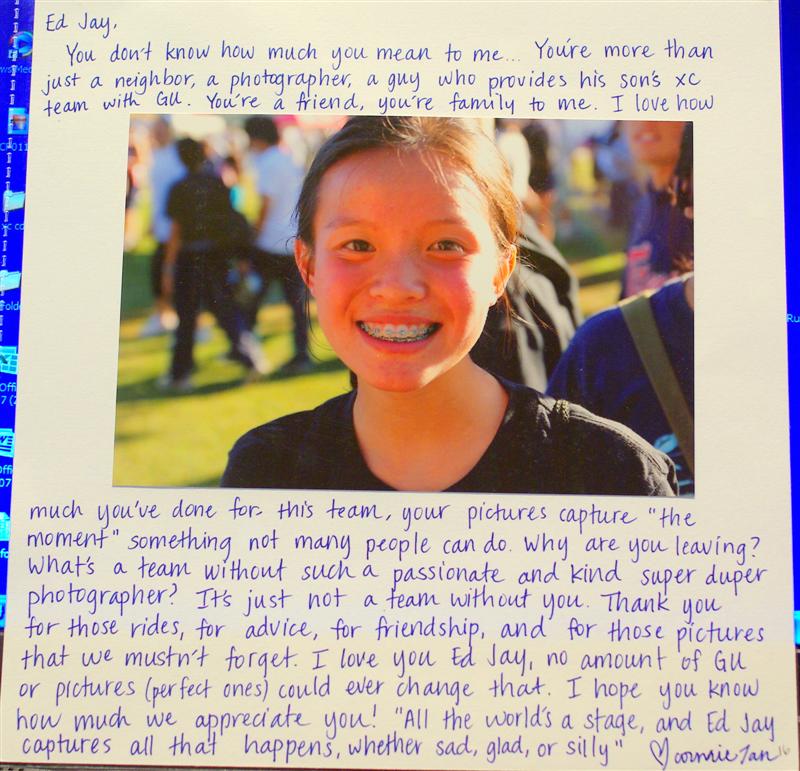 Ed Jay,
You don't know how much you mean to me... You're more than
just a neighbor, a photographer, a guy who provides his son's xc
team with GU. You're a friend, you're family to me. I love how
much you've done for this team, your pictures capture "the
moment" something not many people can do. Why are you leaving?
What's a team without such a passionate and kind super duper
photographer? It's just not a team without you. Thank you
for those rides, for advice, for friendship, and for those pictures
that we mustn't forget. I love you Ed Jay, no amount of GU
or pictures (perfect ones) could ever change that. I hope you know
how much we appreciate you! "All the world's a stage, and Ed Jay
captures all that happens, whether sad, glad, or silly" ♡ Connie Tan